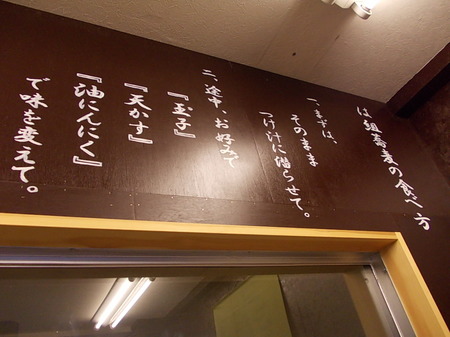 は組蕎麦の食べ方
一、まずは、
そのまま
つけ汁に潜らせて。
二、途中、お好みで
『玉子』
『天かす』
『油にんにく』
で味を変えて。